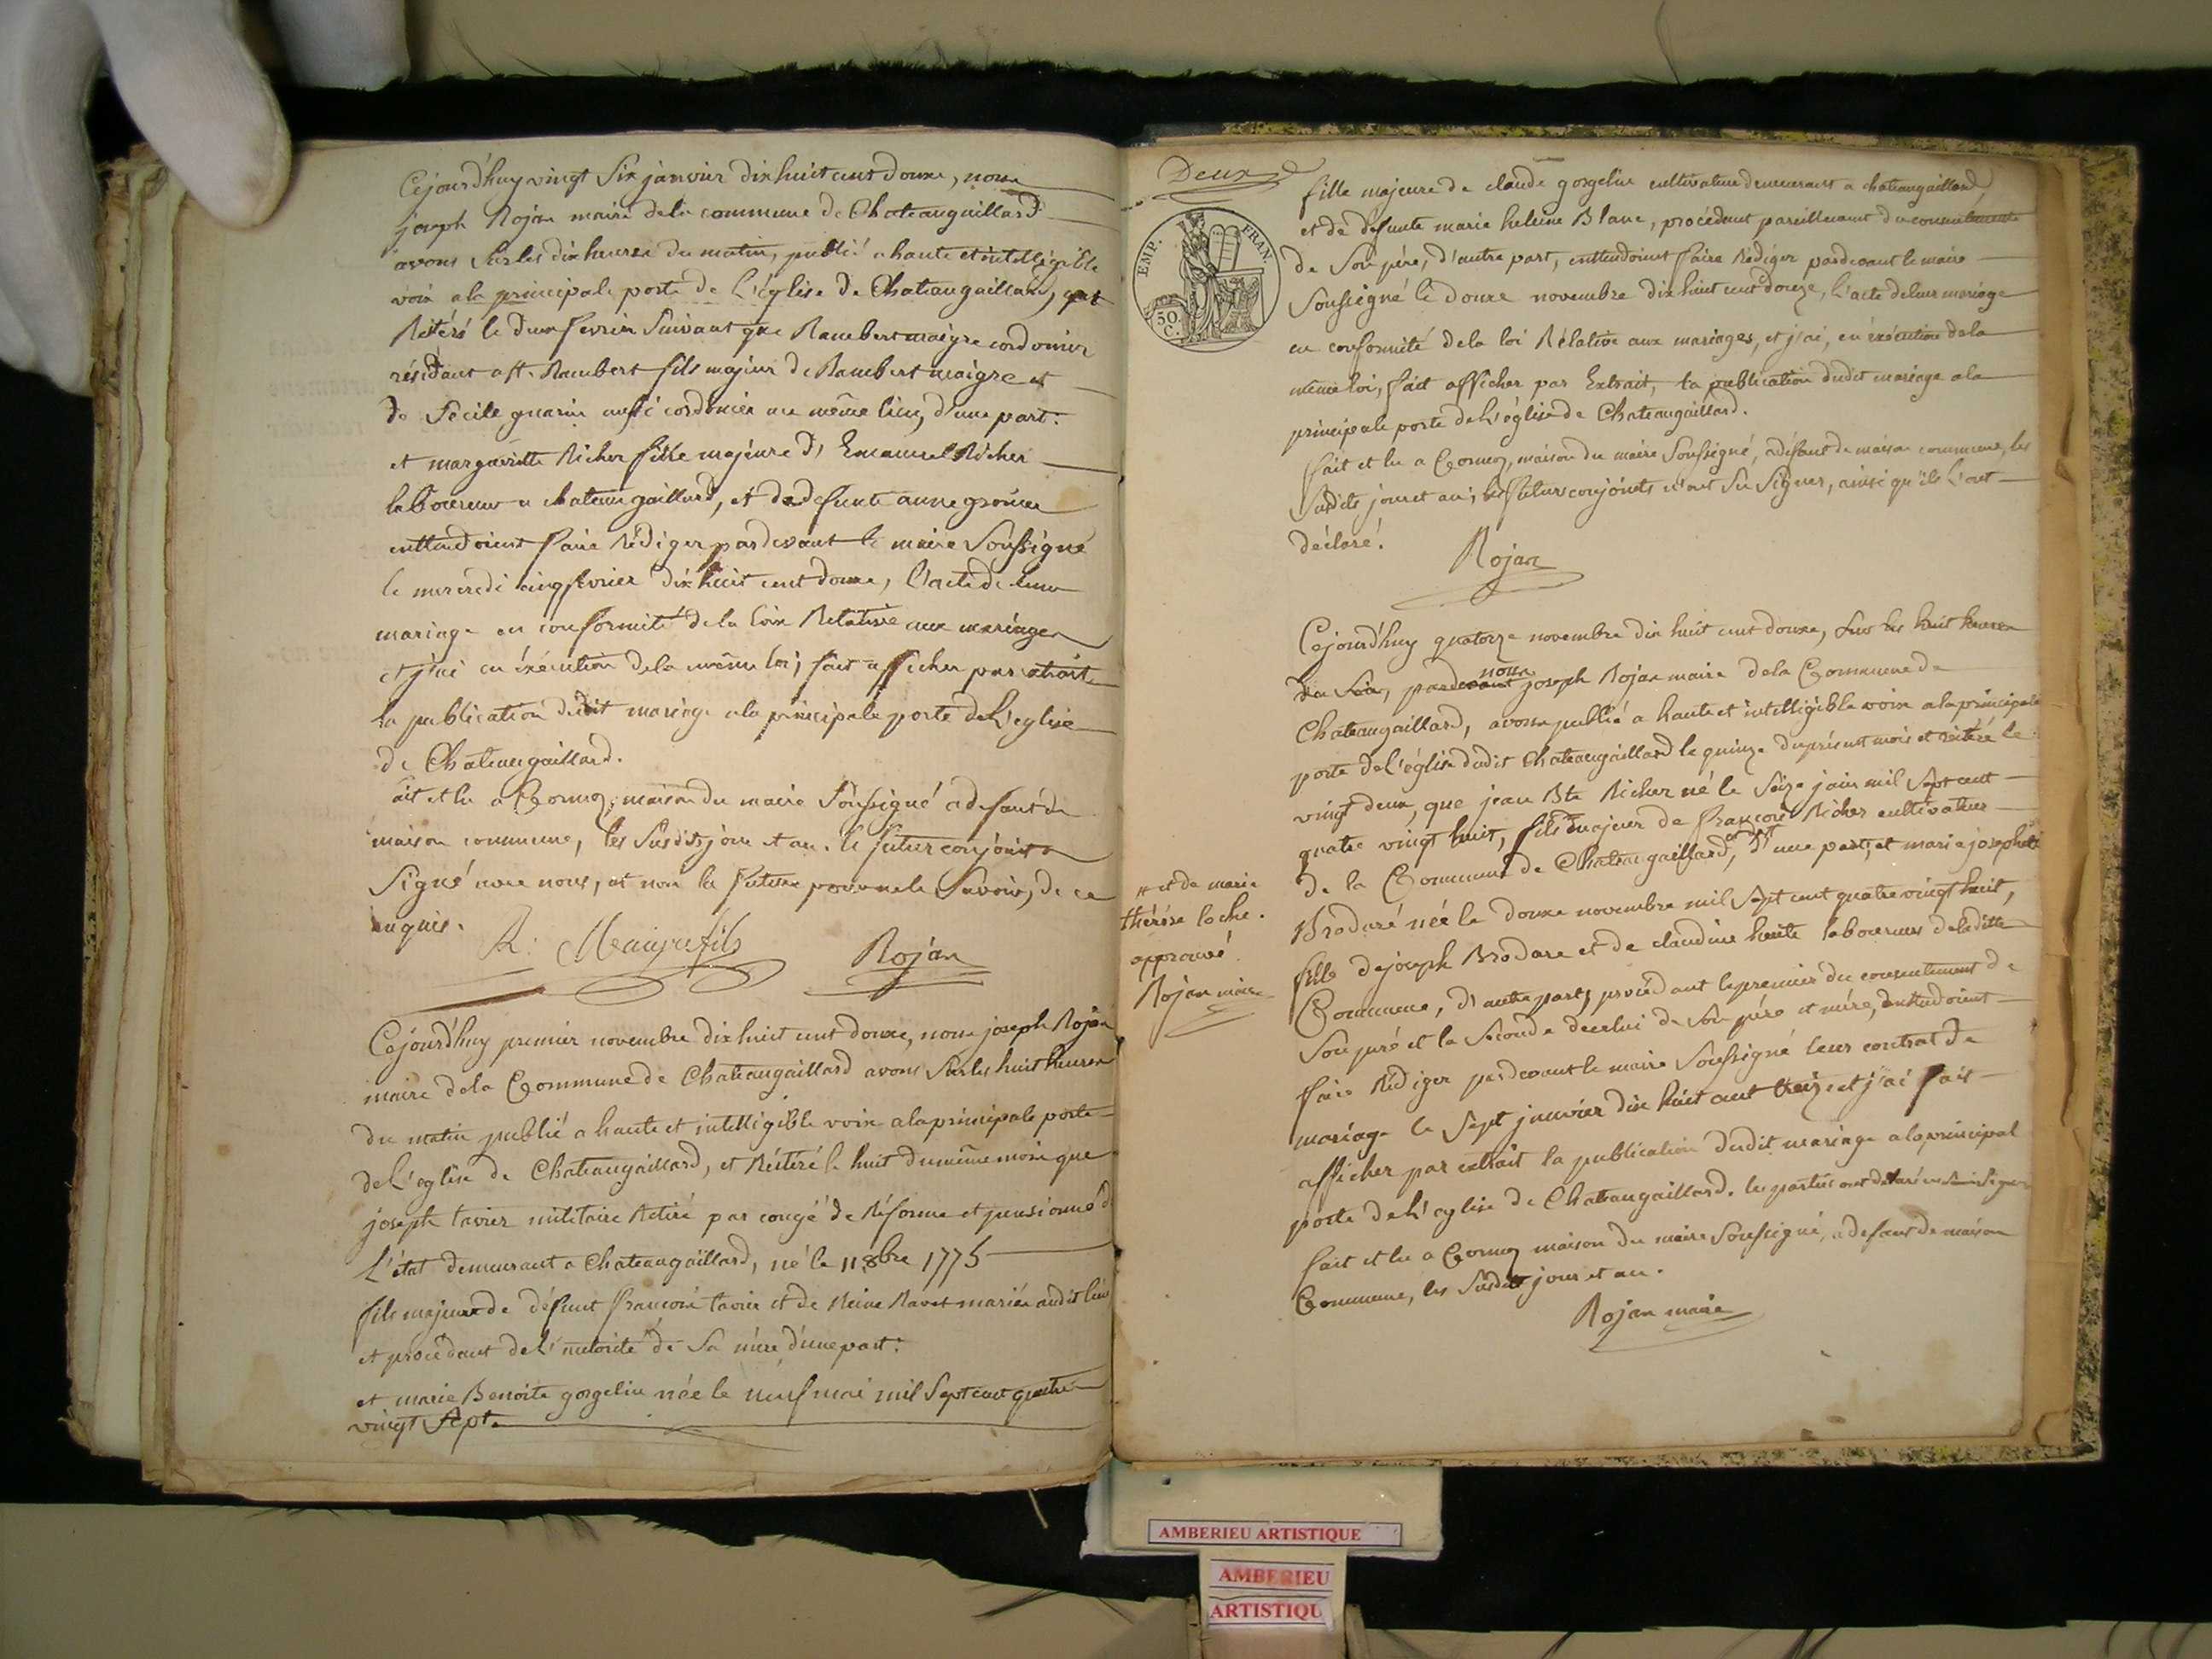 Cejourd'huy vingt six janvier dix huit cent douze, nous
joseph Rojan maire dela commune de Chateaugaillard
avons sur les dix heures du matin, publié a haute et intelligible
voix a la principale porte de L'église de Chateaugaillard, et
Réitéré le deux fevrier suivant que Rambert maigre cordonier
résidant a St. Rambert fils majeur de Rambert maigre et
de Fécile guarin aussi cordonier au même lieu, d'une part.
et margueritte Richer fille majeure d'Emanuel Richer
laboureur a chateaugaillard, et de defunte anne
enttendoient faire Rédiger pardevant le maire soussigné
le mercredi cinq fevrier dix huit cent douze, l'acte de leur
mariage en conformité de la loix Relative aux mariages
et j'ai en éxécution dela même loi, fait afficher par extrait
la publication dudit mariage ala principale porte del'eglise
de Chateaugaillard.
ait et lu a Cormoz, maison du maire soussigné a defaut de
maison commune, les susdits jour et an. le futur conjoint a
signé avec nous, et non la future pour ne le savoir, de ce
enquis.
R. Maigre fils Rojan
Cejourd'huy premier novembre dix huit cent douze, nous joseph Rojan
maire dela Commune de Chateaugaillard avons sur les huit heures
du matin publié a haute et intelligible voix ala principale porte
del'eglise de Chateaugaillard, et Réitéré le huit du même mois que
joseph tavier militaire Retiré par congé de Réforme et pensionné d
L'état demeurant a Chateaugaillard, né le 11 8bre 1775
fils majeur de défunt françois tavier et de Reine Ravet mariés audit lieu
et procédant del'autorité de sa mère d'une part.
et marie Benoite gorgelin née le neuf mai mil sept cent quatre
vingt sept.
Deux
EMP. FRAN.
50
C.
fille majeure de claude gorgelin cultivateur demeurant a chateaugaillard,
et de defunte marie heleine Blanc, procédant pareillement du consentement
de son père, d'autre part, enttendoient faire Rédiger pardevant le maire
soussigné le douze novembre dix huit cent douze, l'acte deleur mariage
en conformité dela loi Rélative aux mariages, et j'ai, en éxécution dela
même loi, fait afficher par Extrait, la publication dudit mariage ala
principale porte del'église de Chateaugaillard.
fait et lu a Cormoz, maison du maire soussigné, a défaut de maison commune, les
susdits jour et an; les futurs conjoints n'ont su signer, ainsi qu'ils l'ont
déclaré.
Rojan
Cejourd'huy quatorze novembre dix huit cent douze, sur les huit heures
du soir, pardevant nous joseph Rojan maire dela Commune de
Chateaugaillard, avons publié a haute et intelligible voix ala principale
porte del'église dudit Chateaugaillard le quinze du présent mois et réitéré le
vingt deux, que jean Bte Richer né le seize juin mil sept cent
quatre vingt huit, fils majeur de françois Richer cultivateur
de la Commune de Chateaugaillard, d'une part, et marie josephte
Brodaré née le douze novembre mil sept cent quatre vingt huit,
fille de joseph Brodare et de claudine laboureurs deladitte
Commune, d'autre part, procédant le premier du consentement de
son père et la seconde decelui de son père et mère, enttendoient
faire Rédiger pardevant le maire soussigné leur contrat de
mariage le sept janvier dix huit cent treize et j'ai fait
afficher par extrait la publication dudit mariage ala principal
porte del'eglise de Chateaugaillard. les parties ont déclaré ne savoir signer
fait et lu a Cormoz maison du maire soussigné, a defaut de maison
Commune, les susdits jour et an.
Rojan maire
et de marie
thérèse loche.
approuvé
Rojan maire
AMBERIEU ARTISTIQUE
AMBERIEU
ARTISTIQU